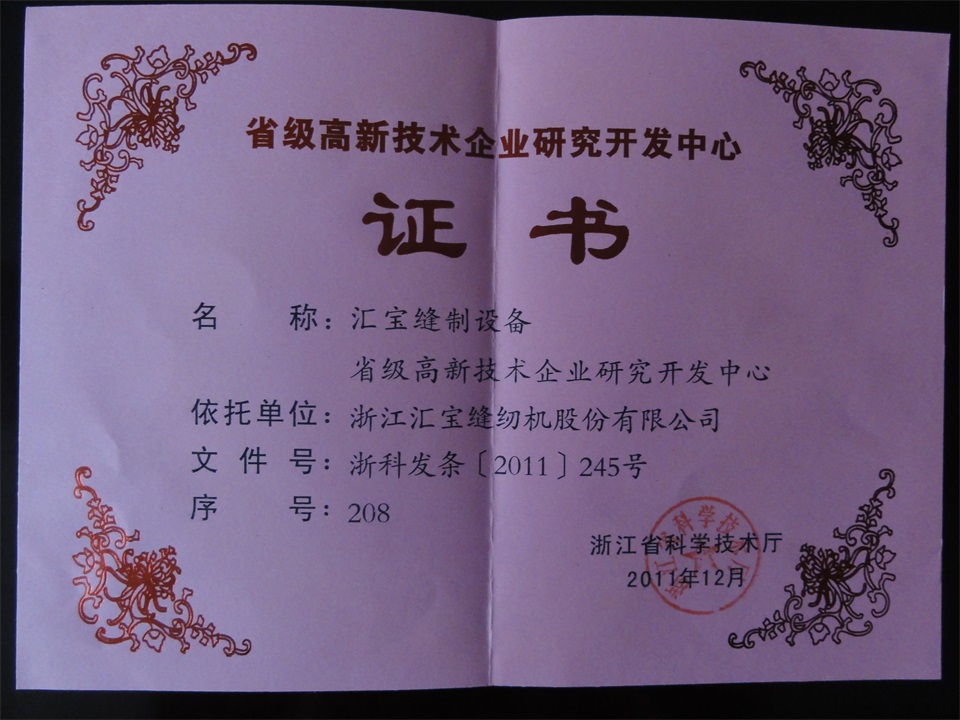 省级高新技术企业研究开发中心
证书
名称：汇宝缝制设备
省级高新技术企业研究开发中心
依托单位：浙江汇宝缝纫机股份有限公司
文件号：浙科发条〔2011〕245号
序号：208
浙江省科学技术厅
2011年12月